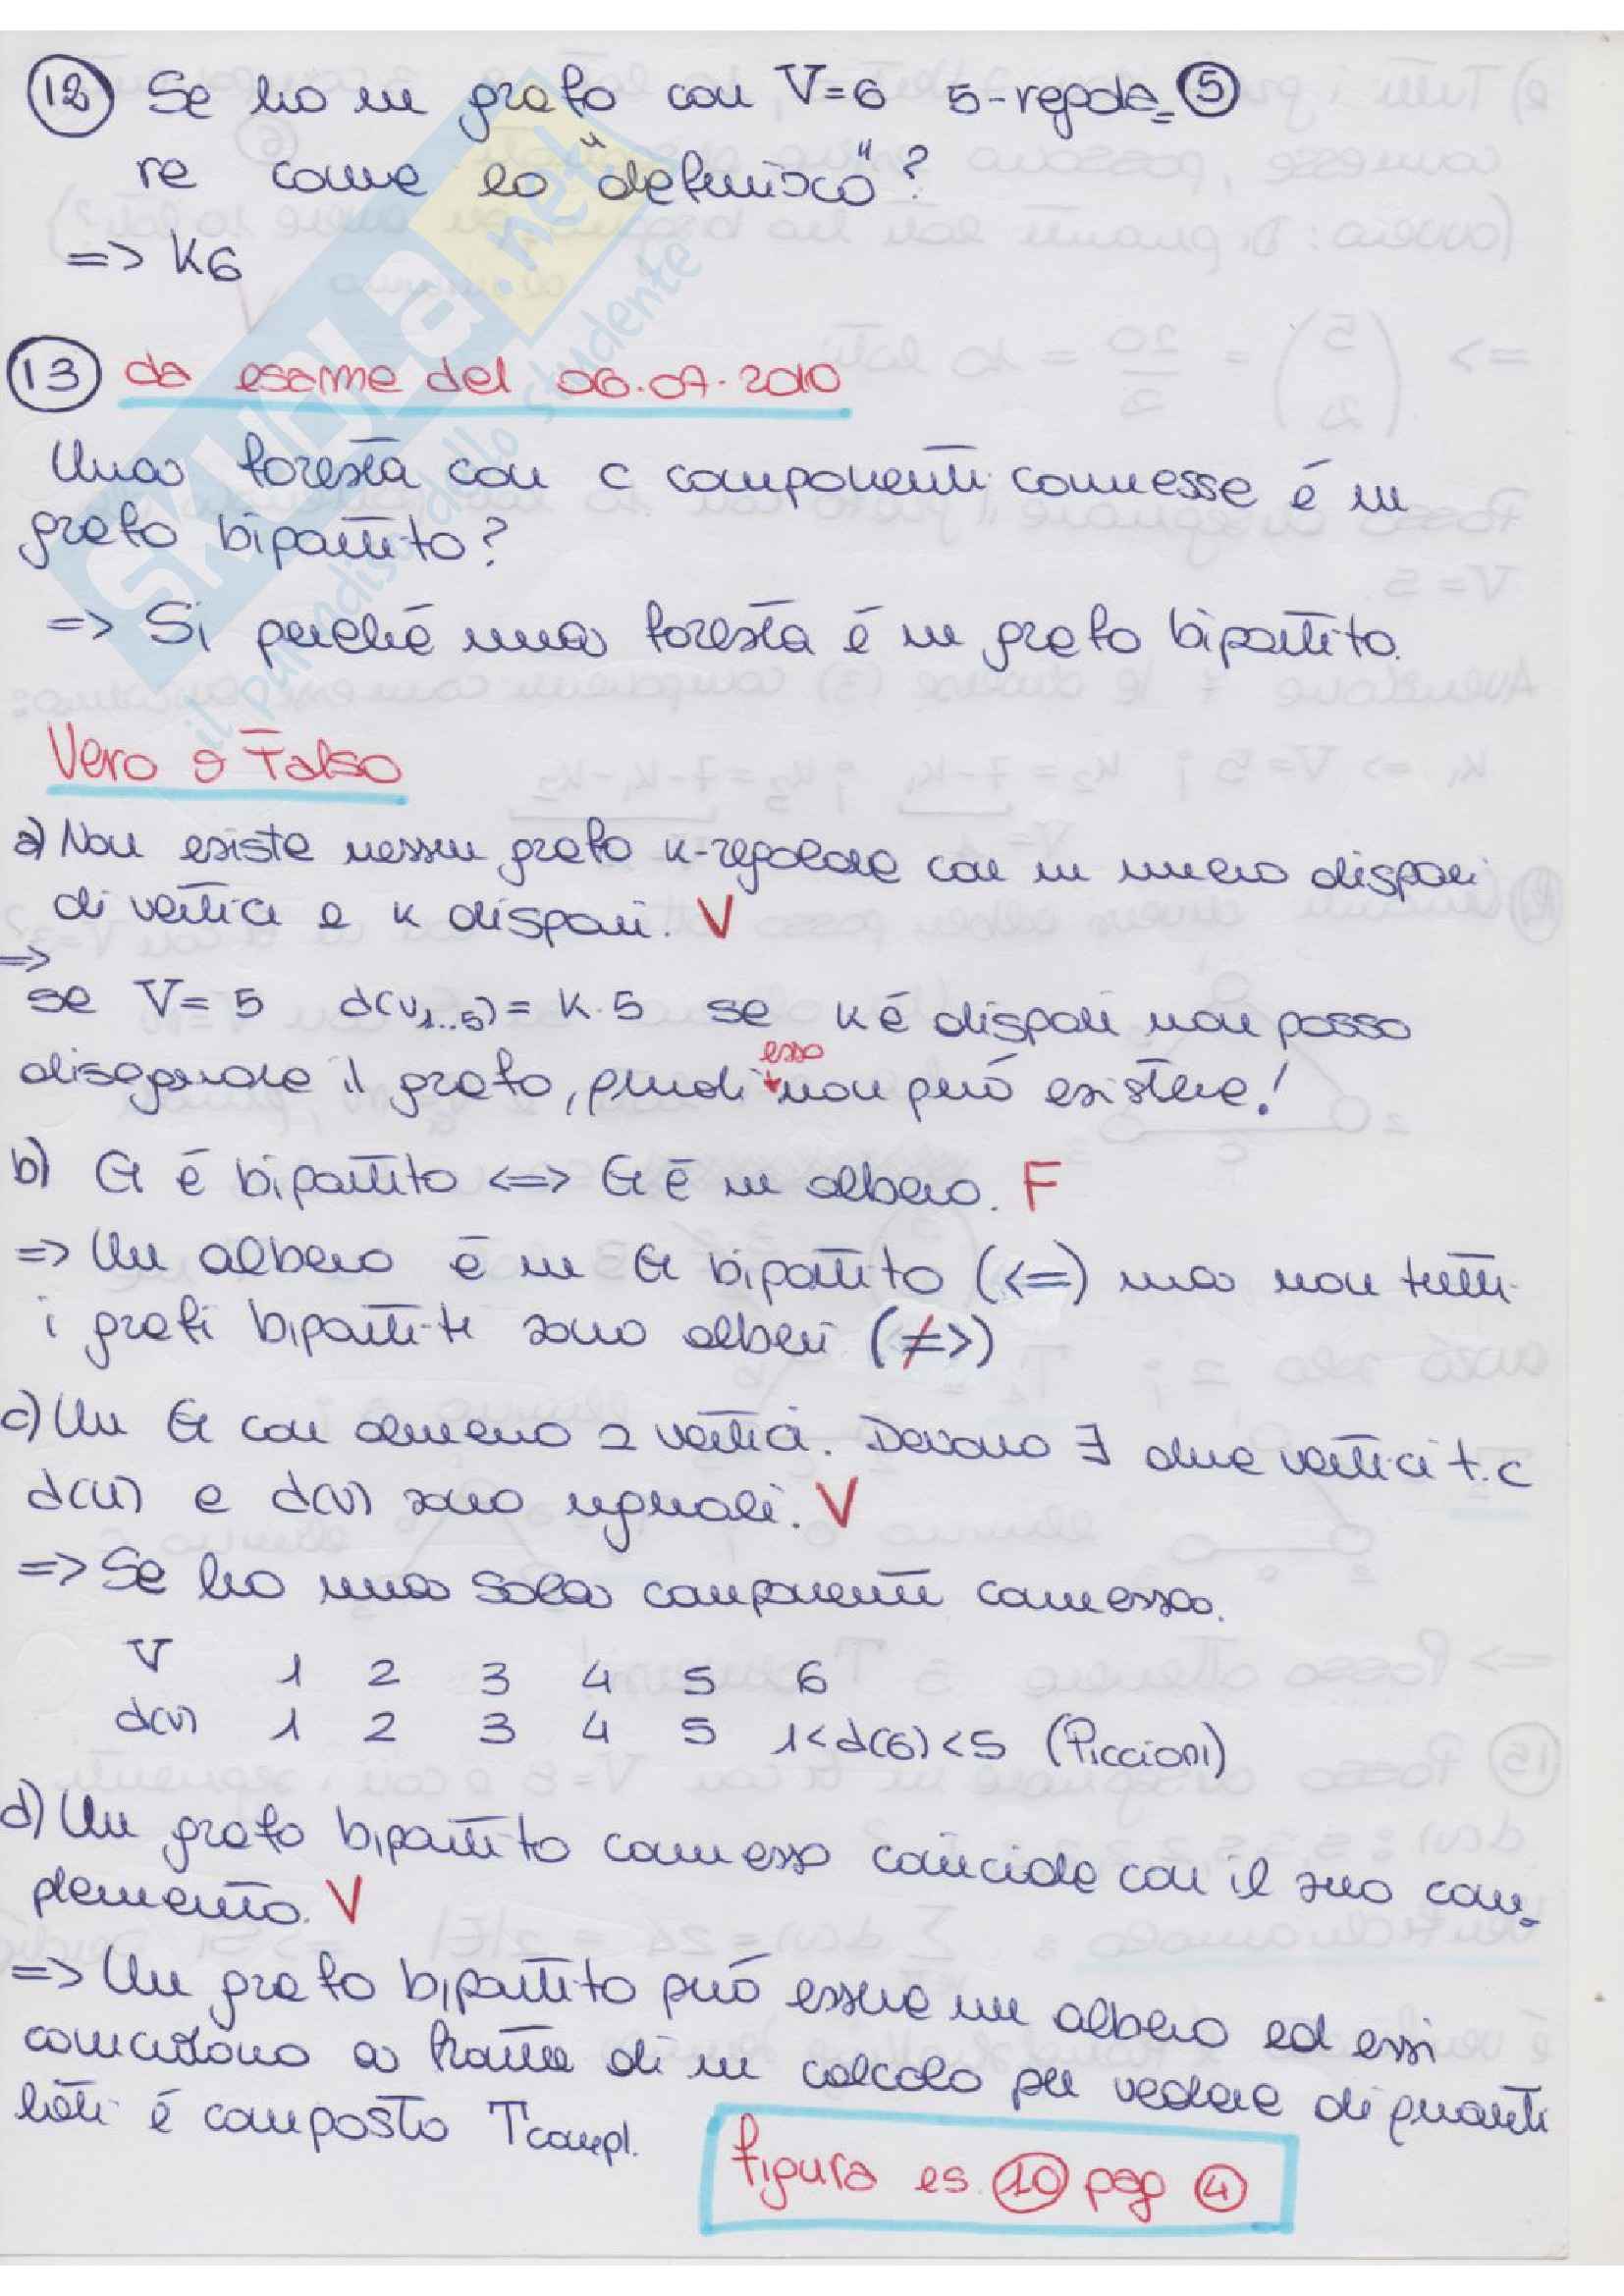 12 Se ho un grafo con V=6 5-regola= 5
re come lo "definisco"?
=> K6
13 da esame del 06.07.2010
Una foresta con c componenti connesse é un
grafo bipartito?
=> Si perché una foresta é un grafo bipartito.
Vero o Falso
a) Non esiste nessun grafo k-regolare con un numero dispari
di vertici e k dispari. V
=>
se V= 5 d(v1..5) = k.5 se k é dispari non posso
esso
disegnare il grafo, quindi non può esistere!
b) G é bipartito <=> G é un albero. F
=> Un albero é un G bipartito (<=) ma non tutti
i grafi bipartiti sono alberi (≠>)
c) Un G con almeno 2 vertici. Devono ∃ due vertici t.c
d(u) e d(v) sono uguali. V
=> Se ho una sola componente connessa.
V 1 2 3 4 5 6
d(v) 1 2 3 4 5 1<d(6)<5 (Piccioni)
d) Un grafo bipartito connesso coincide con il suo com=
plemento. V
=> Un grafo bipartito può essere un albero ed essi
coincidono a fronte di un calcolo per vedere di quanti
lati é composto Tcompl.
figura es. 10 pag 4
SKUOLA.net
il paradiso dello studente